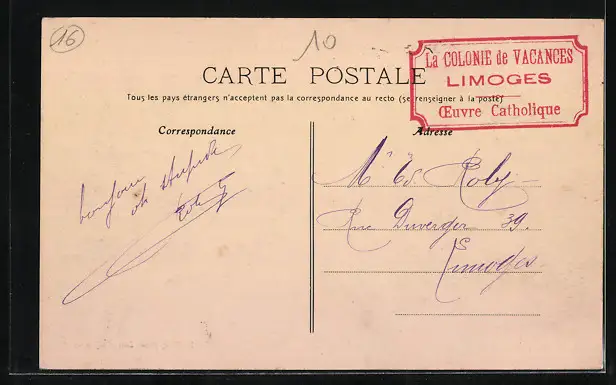 16
10
La COLONIE de VACANCES
LIMOGES
Œuvre Catholique
CARTE POSTALE
Tous les pays étrangers n'acceptent pas la correspondance au recto (se renseigner à la poste)
Correspondance
Adresse
bonjour
Roby
Rue Duverger 39.
Limoges